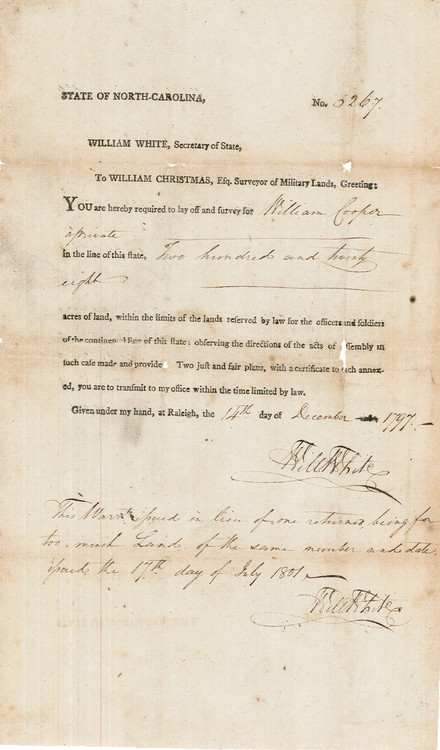 STATE OF NORTH-CAROLINA, No. 5267.
WILLIAM WHITE, Secretary of State,
To WILLIAM CHRISTMAS, Esq. Surveyor of Military Lands, Greeting:
YOU are hereby required to lay off and survey for William Cooper
a private
in the line of this state, Two hundred and twenty
eight
acres of land, within the limits of the lands reserved by law for the officers and soldiers
of the continental line of this state: observing the directions of the acts of assembly in
such case made and provided. Two just and fair plans, with a certificate to each annex-
ed, you are to transmit to my office within the time limited by law.
Given under my hand, at Raleigh, the 14th day of December 1797.
Will White
This Warrt. issued in lieu of one returned being for
too much Land of the same number and date
issued the 17th day of July 1801
Will White